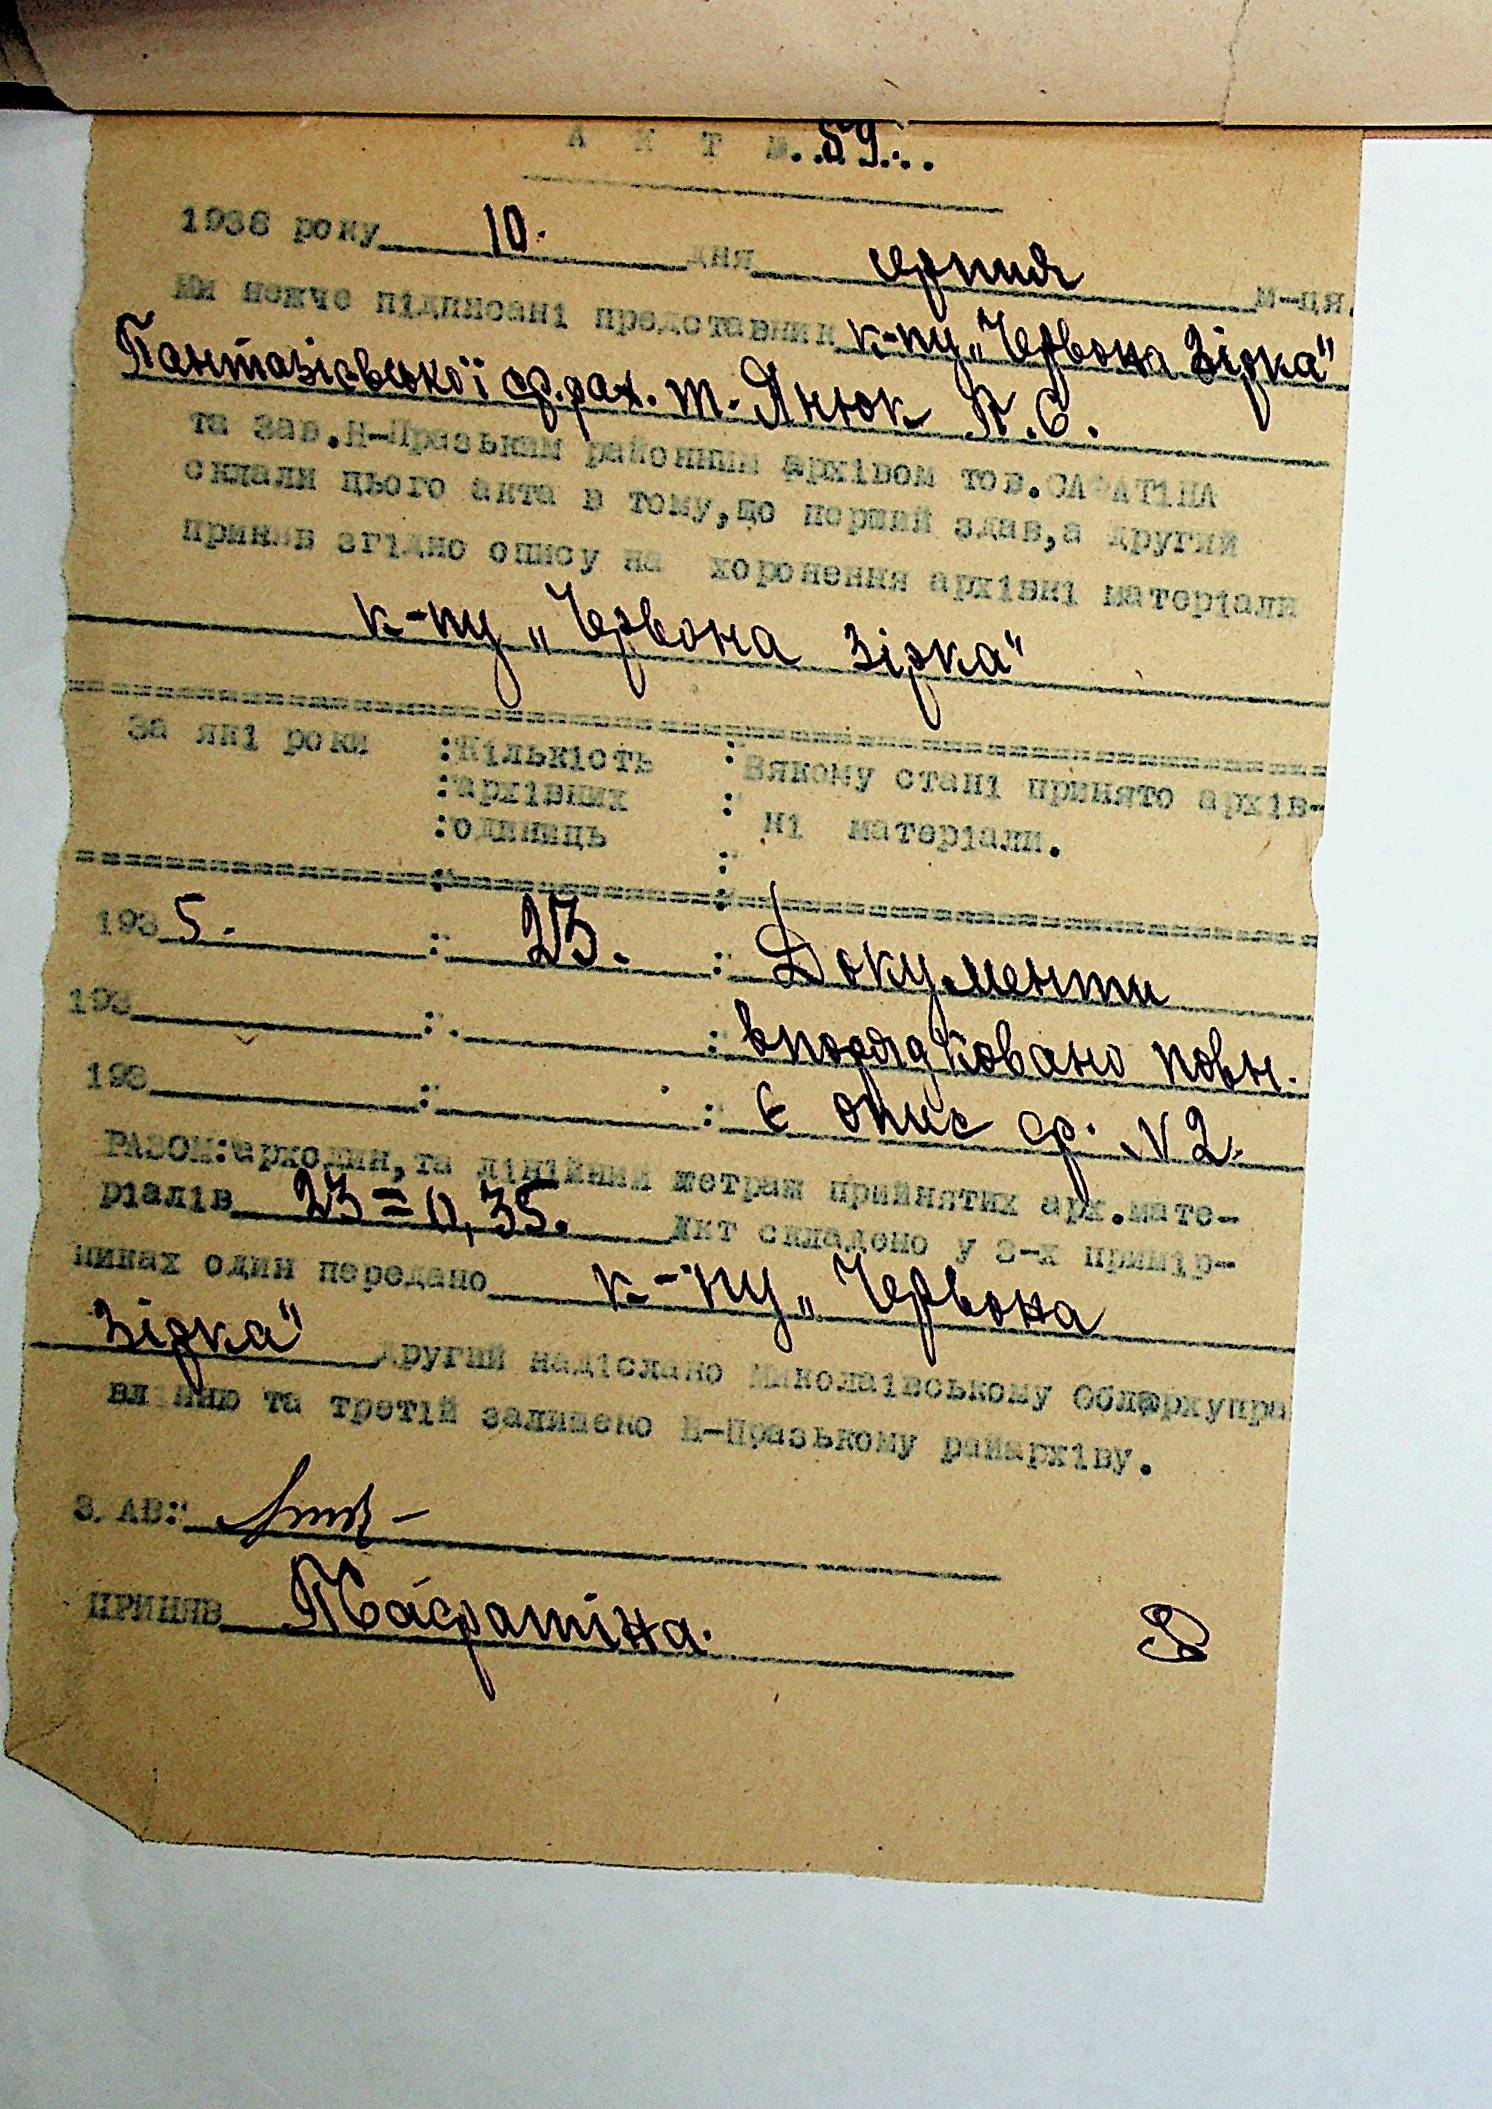 А К Т №. 89...
1938 року 10. дня серпня м-ця.
Ми нежче підписані представник к-пу „Червона Зірка"
Пантазієвської ср.рах. т. Янюк П.С.
та зав.Н-Празьким районним архівом тов.САФАТІНА
склали цього акта в тому,що перший здав,а другий
приняв згідно опису на хоронення архівні матеріали
к-пу „Червона Зірка"
За які роки :Кількість : Вякому стані принято архів-
:архівних : ні матеріали.
:одиниць :
193 5. : 23. : Документи
193 : . : впорядковано повн.
193 : : Є опис ф. N 2.
РАЗОМ:арходин,та лінійний метраж прийнятих арх.мате-
ріалів 23 = 0,35. Акт складено у 3-х примір-
никах один передано к-пу „Червона
Зірка" другий надіслано Миколаівському Облархупра
влінню та третій залишено Н-Празькому райархіву.
З.АВ:
ПРИНЯВ Сафатіна.